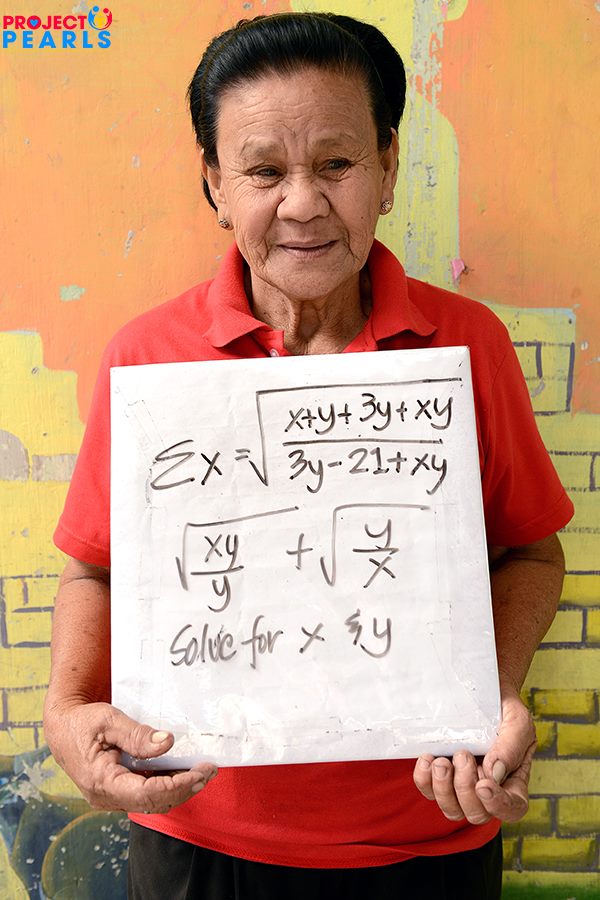 PROJECT
PEARLS
Σx = √((x+y+3y+xy)/(3y-21+xy))
√(xy/y) + √(y/x)
Solve for x & y